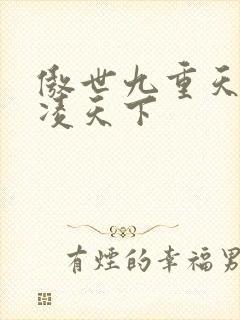 傲世九重天
凌天下
有煙的幸福男